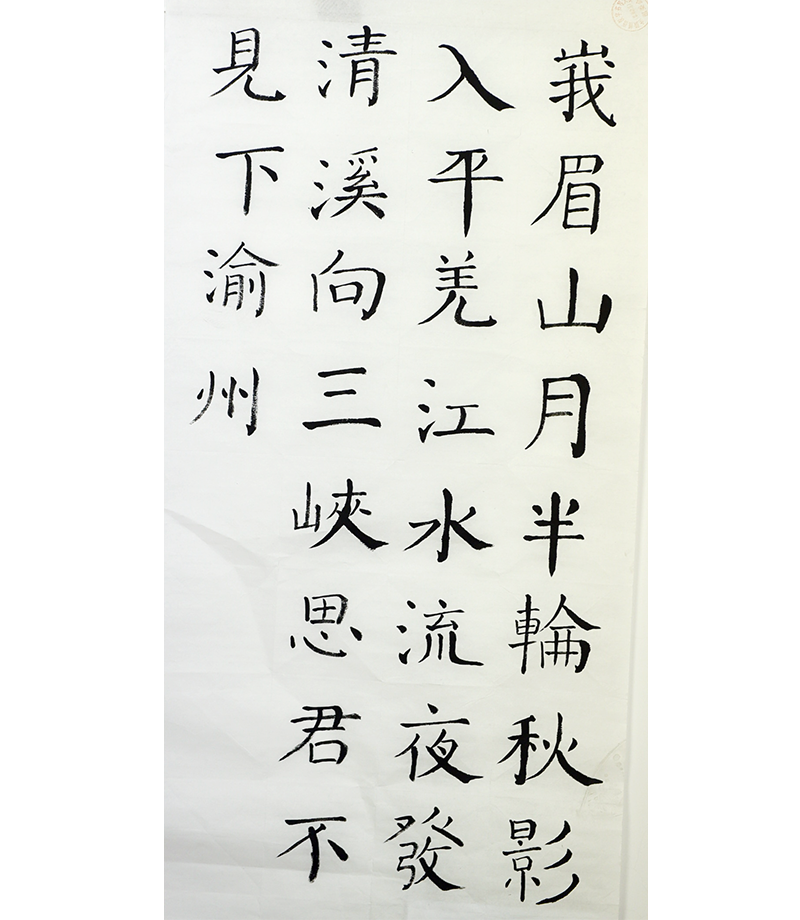 峩眉山月半輪秋影
入平羌江水流夜發
清溪向三峽思君不
見下渝州